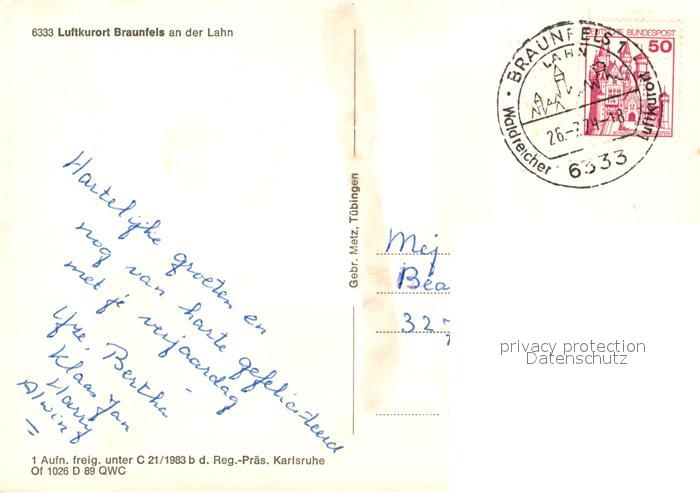 6333 Luftkurort Braunfels an der Lahn
DEUTSCHE BUNDESPOST
50
· BRAUNFELS 1
LAHN
26.-7.79.-18
Waldreicher
Luftkurort
6333
Hartelijke groeten en
nog van harte gefeliciteerd
met je verjaardag
Bertha
Klaas Jan
Harry
Alwin
Gebr. Metz, Tübingen
Mej
Bea
32-
privacy protection
Datenschutz
1 Aufn. freig. unter C 21/1983 b d. Reg.-Präs. Karlsruhe
Of 1026 D 89 QWC